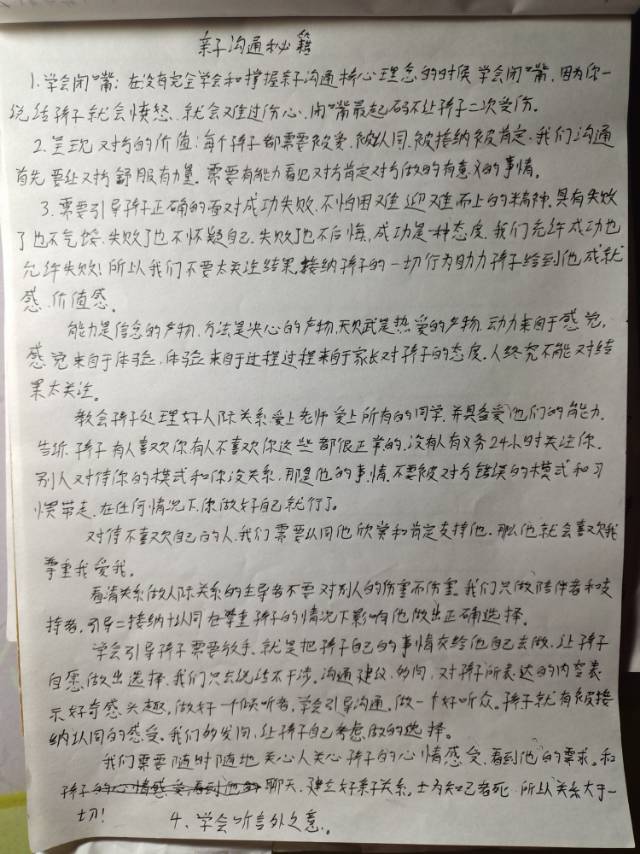 亲子沟通秘籍
1.学会闭嘴:在没有完全学会和掌握亲子沟通核心理念的时侯学会闭嘴,因为你一
说话孩子就会愤怒.就会难过伤心,闭嘴最起码不让孩子二次受伤。
2.呈现对方的价值:每个孩子都需要被爱.被认同.被接纳被肯定.我们沟通
首先要让对方舒服有力量。需要有能力看见对方肯定对方做的有意义的事情。
3.需要引导孩子正确的面对成功失败.不怕困难迎难而上的精神.具有失败
了也不气馁.失败了也不怀疑自己.失败了也不后悔,成功是一种态度.我们允许成功也
允许失败!所以我们不要太关注结果,接纳孩子的一切行为助力孩子给到他成就
感.价值感。
能力是信念的产物.方法是决心的产物.天赋是热爱的产物.动力来自于感觉,
感觉来自于体验.体验来自于过程过程来自于家长对孩子的态度.人终究不能对结
果太关注。
教会孩子处理好人际关系爱上老师爱上所有的同学.并具备爱他们的能力.
告诉孩子有人喜欢你有人不喜欢你这些都很正常的.没有人有义务24小时关注你.
别人对待你的模式和你没关系,那是他的事情.不要被对方错误的模式和习
惯带走.在任何情况下.你做好自己就行了。
对待不喜欢自己的人.我们需要认同他欣赏和肯定支持他.那么他就会喜欢我
尊重我爱我。
看清关系做人际关系的主导者不要对别人的伤害而伤害.我们只做陪伴者和支
持者,引导=接纳+认同在尊重孩子的情况下影响他做出正确选择。
学会引导孩子需要放手.就是把孩子自己的事情交给他自己去做.让孩子
自愿做出选择.我们只去说话不干涉.沟通建议.的问.对孩子所表达的内容表
示好奇感兴趣,做好一个倾听者,学会引导沟通.做一个好听众.孩子就有被接
纳认同的感受.我们的发问,让孩子自己考虑做的选择。
我们需要随时随地关心人关心孩子的心情感受.看到他的需求。和
孩子的心情感受看到他的聊天.建立好亲子关系.士为知己者死.所以关系大于一
切!
4、学会听言外之意。